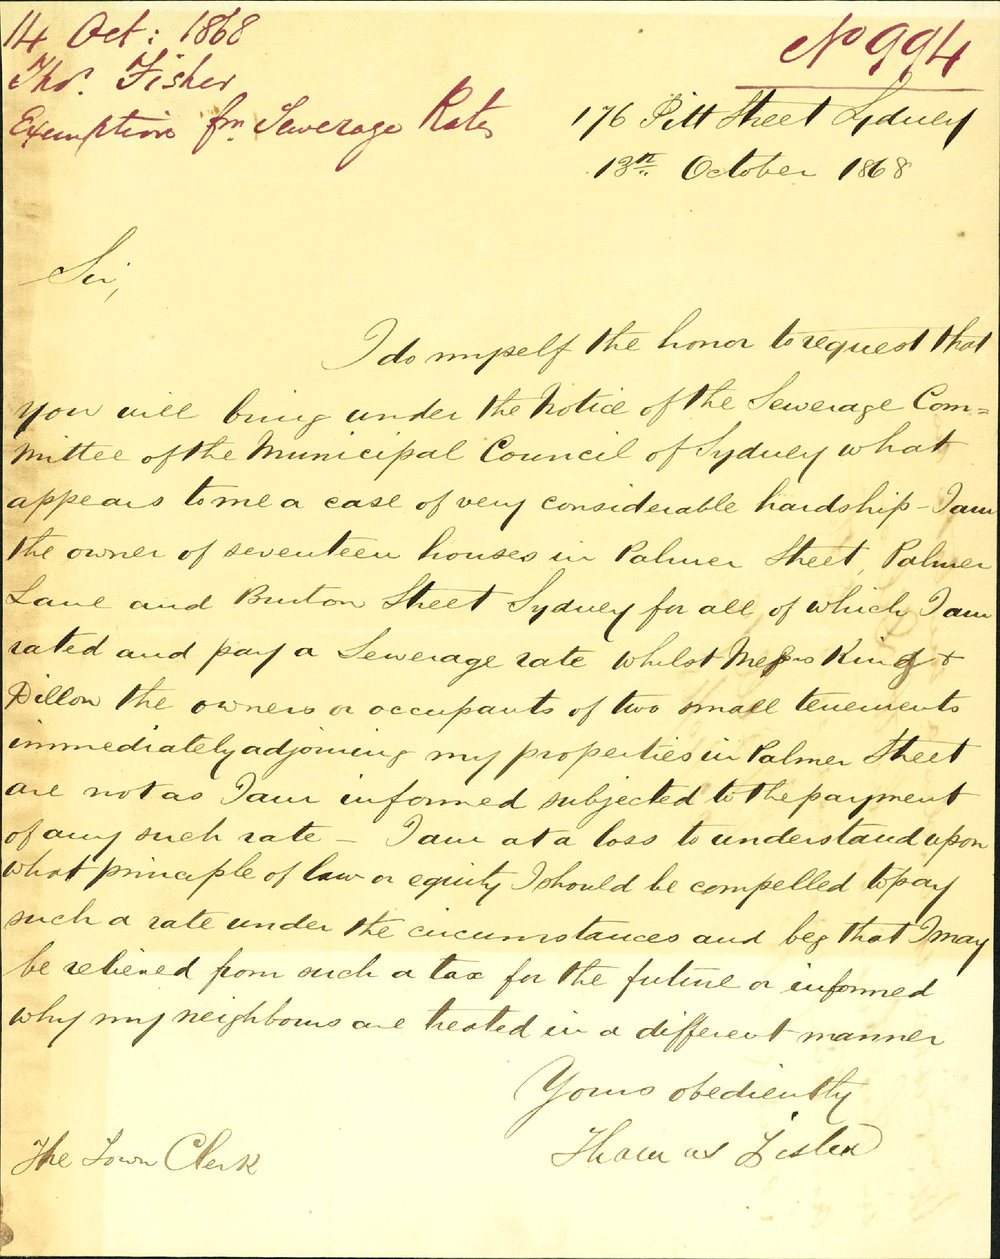 14 Oct: 1868
Thos. Fisher
Exemption fm Sewerage Rates
No 994
176 Pitt Street Sydney
13th October 1868
Sir,
I do myself the honor to request that
you will bring under the Notice of the Sewerage Com=
mittee of the Municipal Council of Sydney what
appears to me a case of very considerable hardship – I am
the owner of seventeen houses in Palmer Street, Palmer
Lane and Burton Street Sydney for all of which I am
rated and pay a Sewerage rate whilst Messrs King &
Dillon the owners or occupants of two small tenements
immediately adjoining my properties in Palmer Street
are not as I am informed subjected to the payment
of any such rate – I am at a loss to understand upon
what principle of law or equity I should be compelled to pay
such a rate under the circumstances and beg that I may
be relieved from such a tax for the future or informed
why my neighbours are treated in a different manner
Yours obediently
Thomas Fisher
The Town Clerk